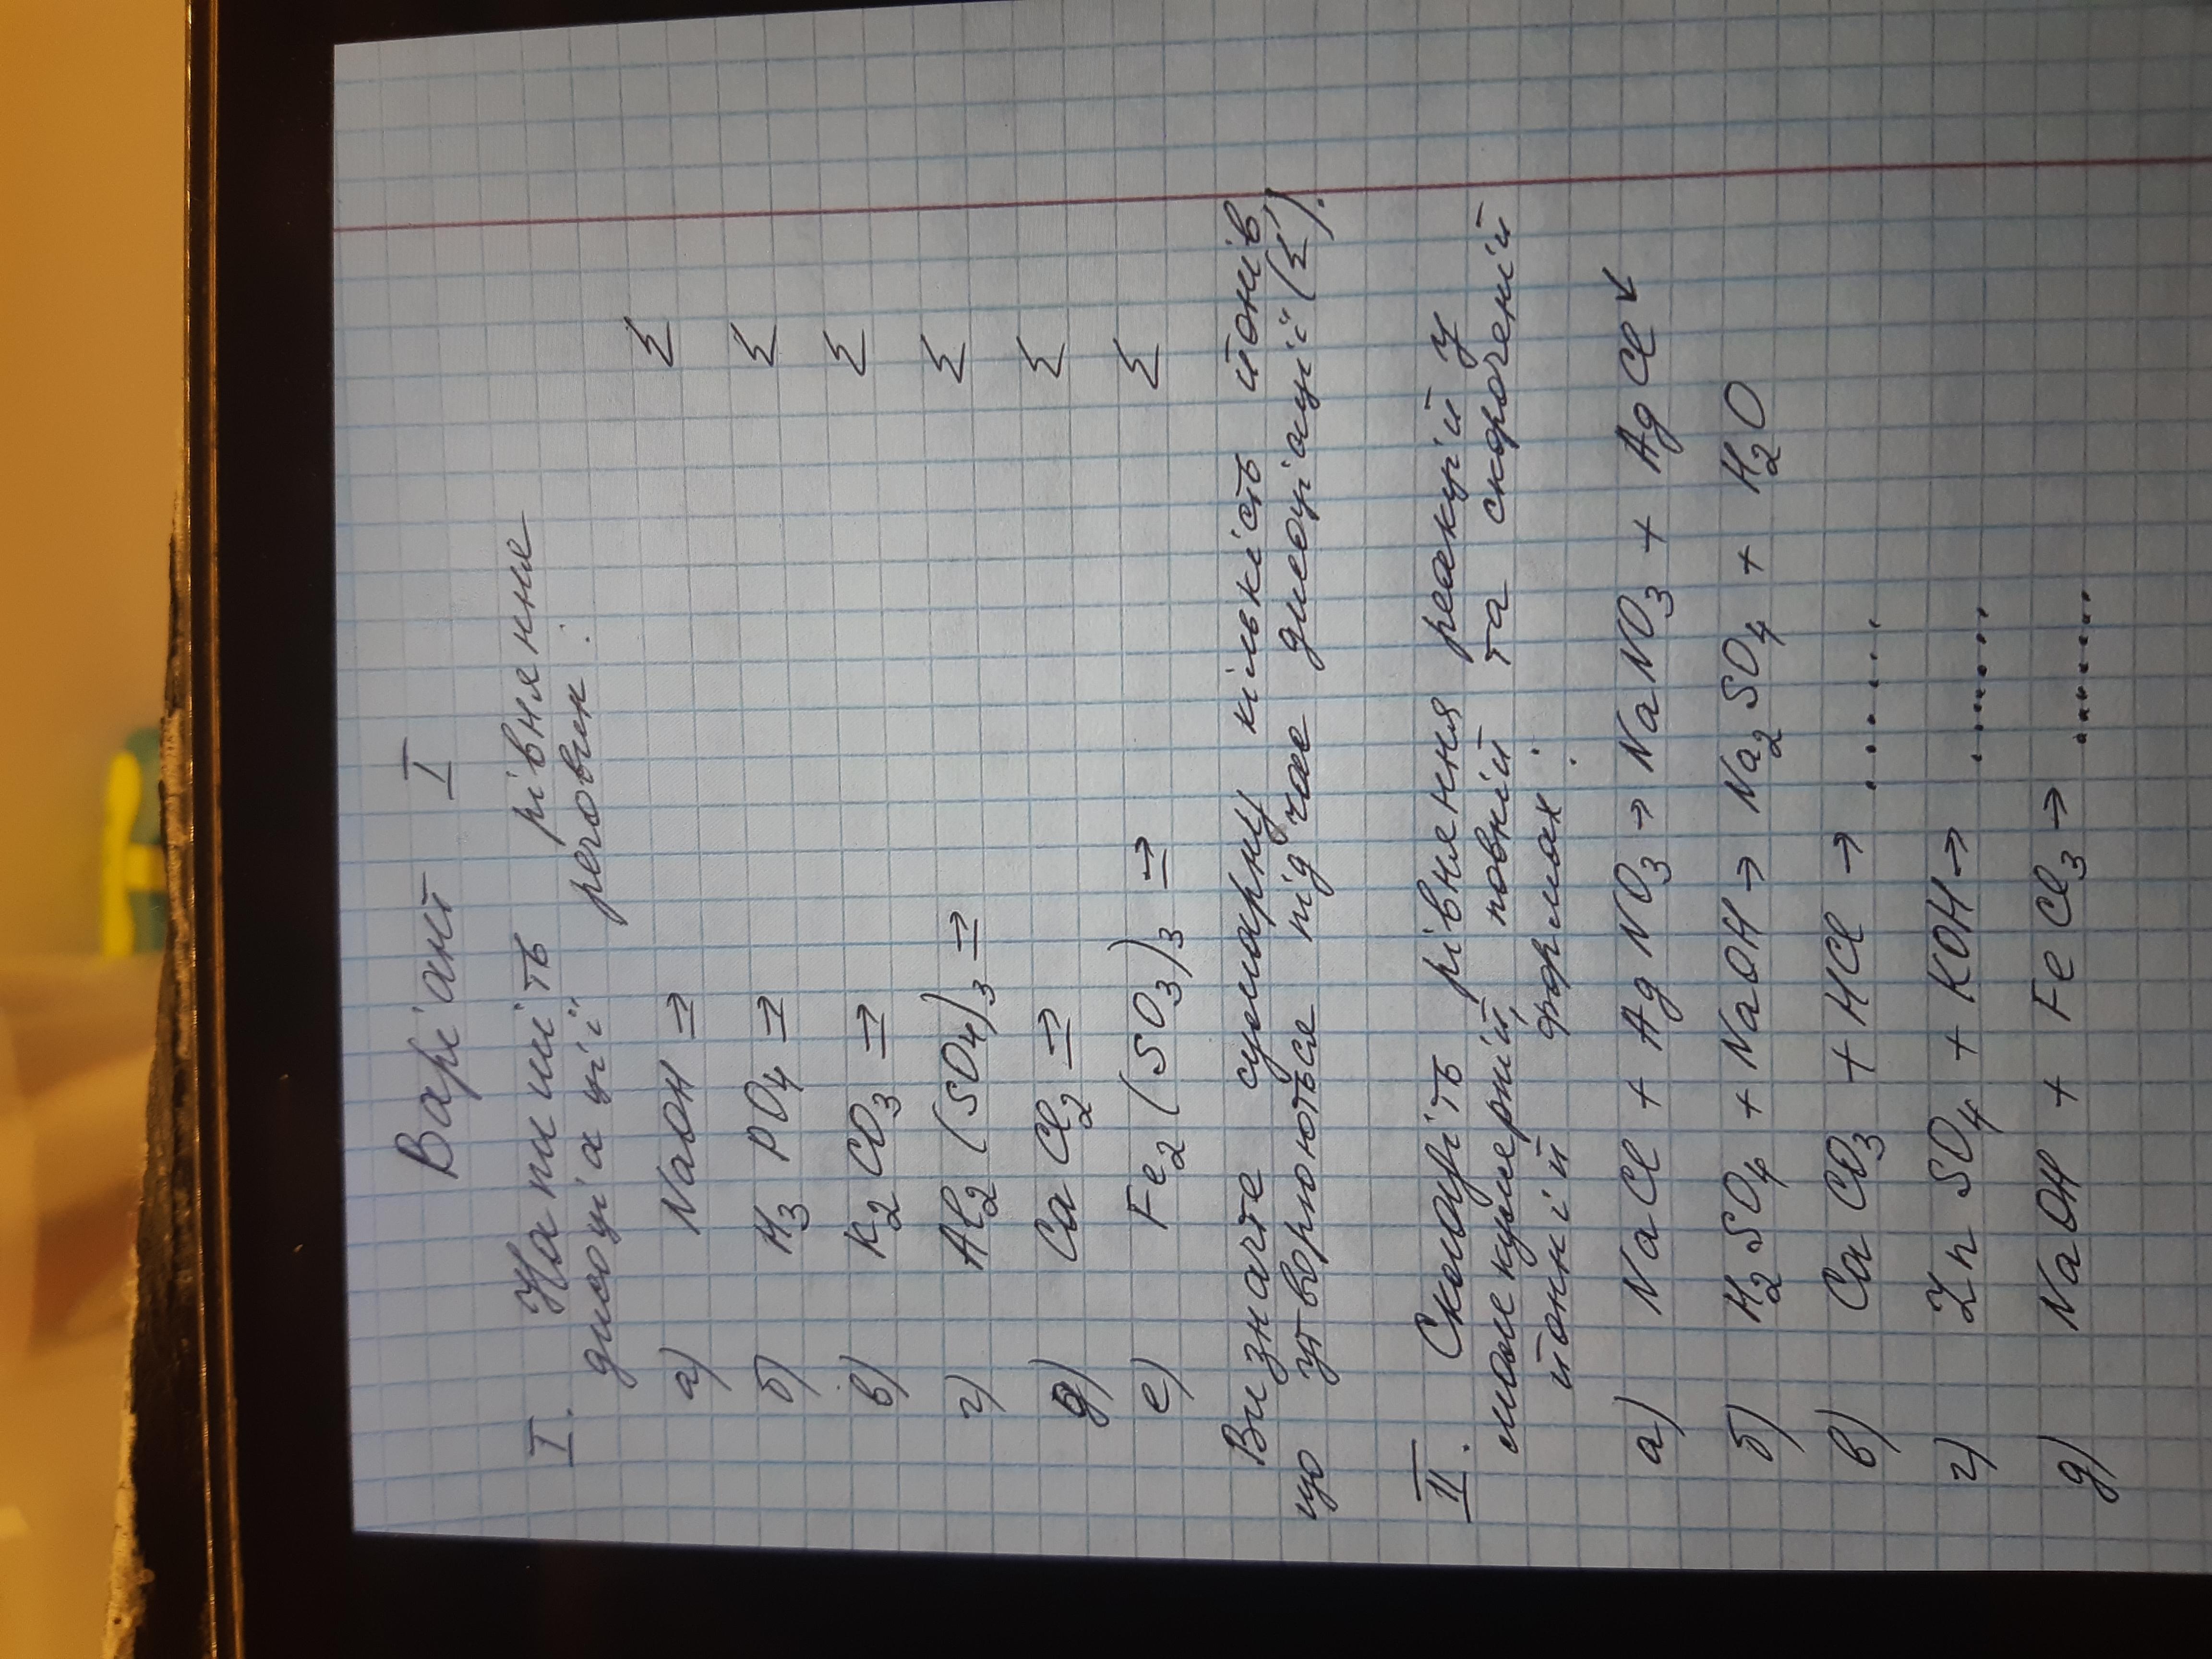 Варіант I
I. Напишіть рівняння
дисоціації речовин:
а) NaOH ⇄ Σ
б) H₃PO₄ ⇄ Σ
в) K₂CO₃ ⇄ Σ
г) Al₂(SO₄)₃ ⇄ Σ
д) CaCl₂ ⇄ Σ
е) Fe₂(SO₃)₃ ⇄ Σ
Визначте сумарну кількість йонів,
що утворюються під час дисоціації (Σ).
II. Складіть рівняння реакцій у
молекулярній, повній та скороченій
йонній формах:
а) NaCl + AgNO₃ → NaNO₃ + AgCl↓
б) H₂SO₄ + NaOH → Na₂SO₄ + H₂O
в) CaCO₃ + HCl → ......
г) ZnSO₄ + KOH → .......
д) NaOH + FeCl₃ → ........